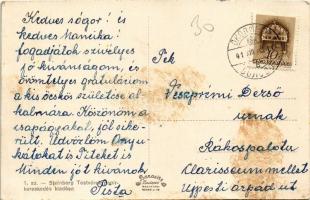 Kedves sógor! és
kedves Mamika!
fogadjátok szívelyes
jó kivánságom, és
örömtelyes gratulátióm
a kis öcskös születése al-
kalmára. Köszönöm a
csapágyakat, jól sike-
rült. Üdvözlöm Anyu-
kátokat is Titeket is
Minden jót kivánok
Pista
30
41
Pék
Veszprémi Dezső
urnak
Rákospalota
Clarisseum mellet
Ujpesti árpád ut
1. sz. — Steinberg Testvérek
kereskedés kiadása